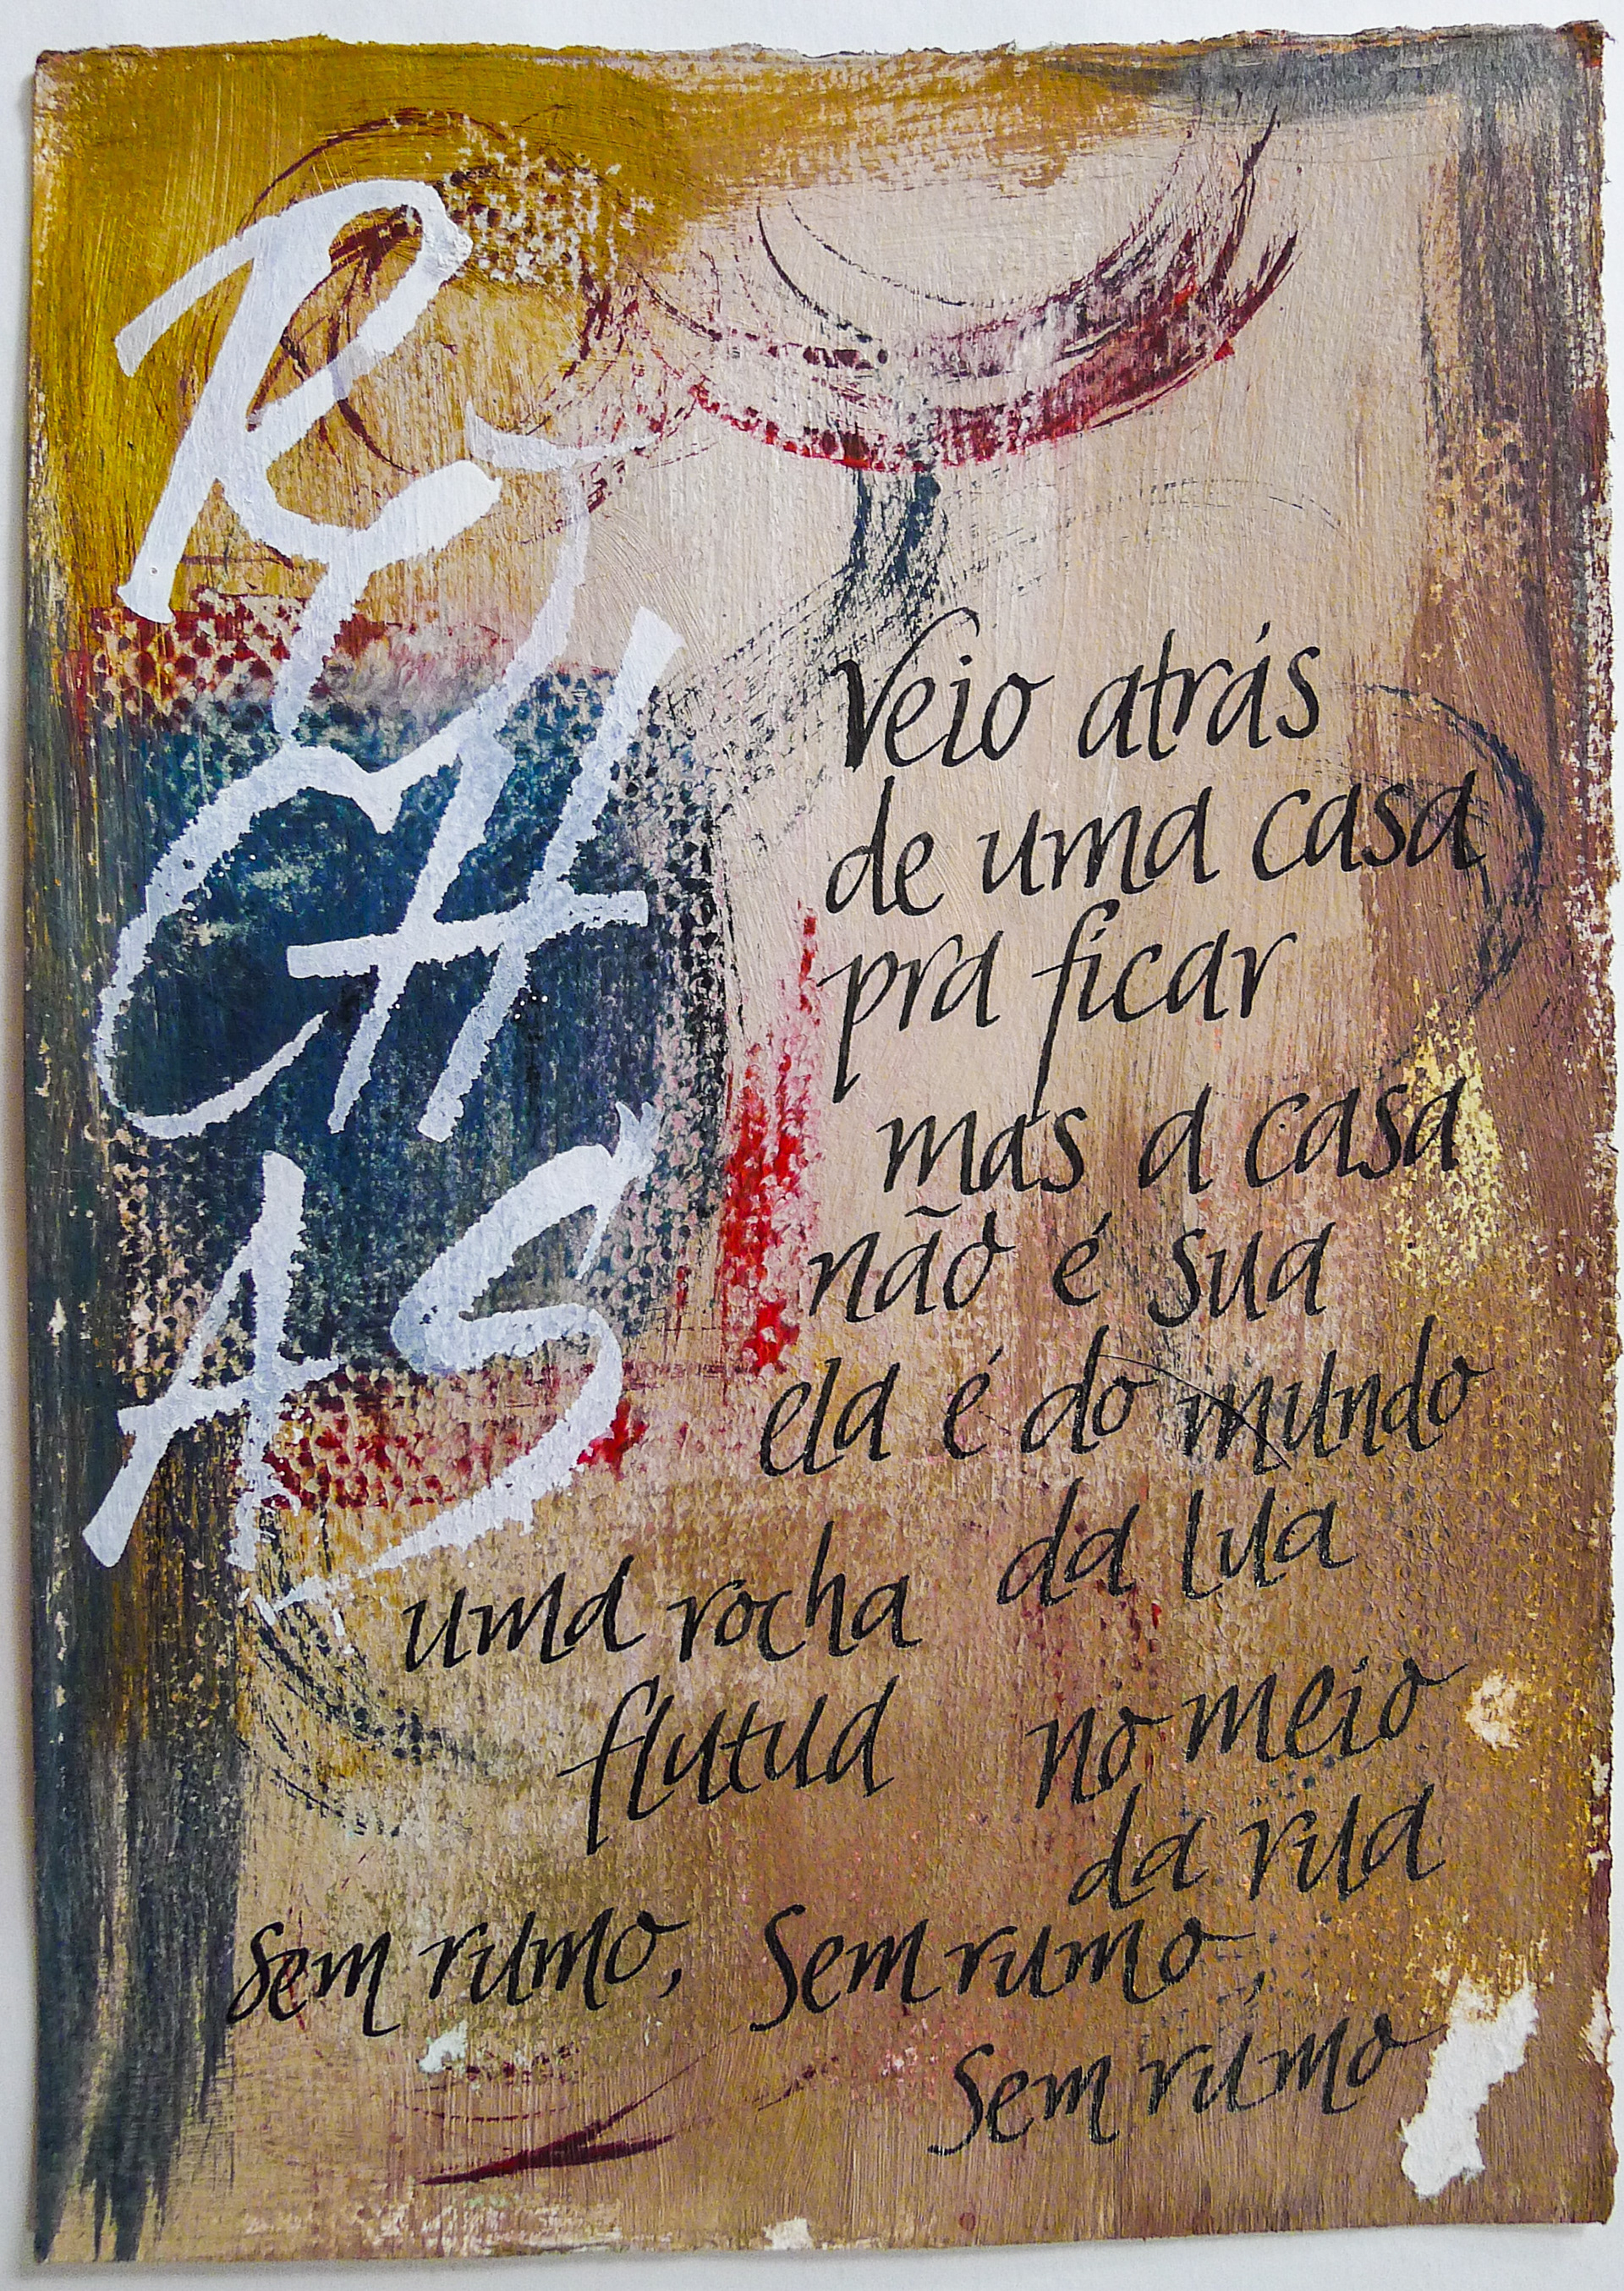 RO
CH
AS
Veio atrás
de uma casa
pra ficar
mas a casa
não é sua
ela é do mundo
da lua
uma rocha
flutua
no meio
da rua
sem rumo, sem rumo,
sem rumo